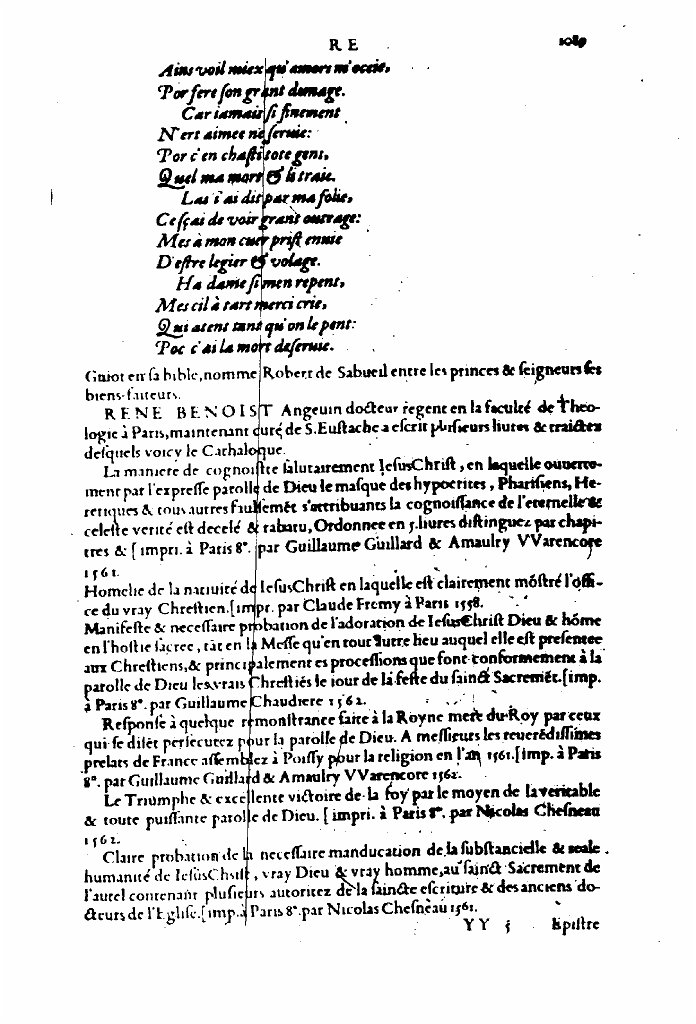 R E 1089
Ains voil miex qu'amors m'occie,
Por fere son grant domage.
Car iamais si finement
N'ert aimee ne seruie:
Por c'en chasti tote gent,
Quel ma mort & li traie.
Las i'ai dit par ma folie,
Ce sçai de voir grant outrage:
Mes à mon cuer prist enuie
D'estre legier & volage.
Ha dame si men repent,
Mes cil à tart merci crie,
Qui atent tant qu'on le pent:
Poc c'ai la mort deseruie.
Guiot en sa bible, nomme Robert de Sabueil entre les princes & seigneurs ses
biens-faiteurs.
RENE BENOIST Angeuin docteur regent en la faculté de Theo-
logie à Paris, maintenant curé de S. Eustache a escrit plusieurs liures & traictez
desquels voicy le Cathalogue.
La maniere de cognoistre salutairement IesusChrist, en laquelle ouuerte-
ment par l'expresse parolle de Dieu le masque des hypocrites, Pharisiens, He-
retiques & tous autres faulsemẽt s'attribuants la cognoissance de l'eternelle &
celeste verité est decelé & rabatu, Ordonnee en 5. liures distinguez par chapi-
tres & [impri. à Paris 8°. par Guillaume Guillard & Amaulry VVarencore
1561.
Homelie de la natiuité de IesusChrist en laquelle est clairement mõstré l'offi-
ce du vray Chrestien. [impr. par Claude Fremy à Paris 1558.
Manifeste & necessaire probation de l'adoration de IesusChrist Dieu & hõme
en l'hostie sacree, tãt en la Messe qu'en tout autre lieu auquel elle est presentee
aux Chrestiens, & principalement es processions que font conformement à la
parolle de Dieu les vrais Chrestiẽs le iour de la feste du sainct Sacremẽt. [imp.
à Paris 8°. par Guillaume Chaudiere 1562.
Response à quelque remonstrance faite à la Royne mere du Roy par ceux
qui se disẽt persecutez pour la parolle de Dieu. A messieurs les reuerẽdissimes
prelats de France assemblez à Poissy pour la religion en l'an 1561. [imp. à Paris
8°. par Guillaume Guillard & Amaulry VVarencore 1562.
Le Triumphe & excellente victoire de la foy par le moyen de la veritable
& toute puissante parolle de Dieu. [impri. à Paris 8°. par Nicolas Chesneau
1562.
Claire probation de la necessaire manducation de la substancielle & reale
humanité de IesusChrist, vray Dieu & vray homme, au sainct Sacrement de
l'autel contenant plusieurs autoritez de la saincte escriture & des anciens do-
cteurs de l'Eglise. [imp. à Paris 8°. par Nicolas Chesneau 1561.
YY 5 Epistre